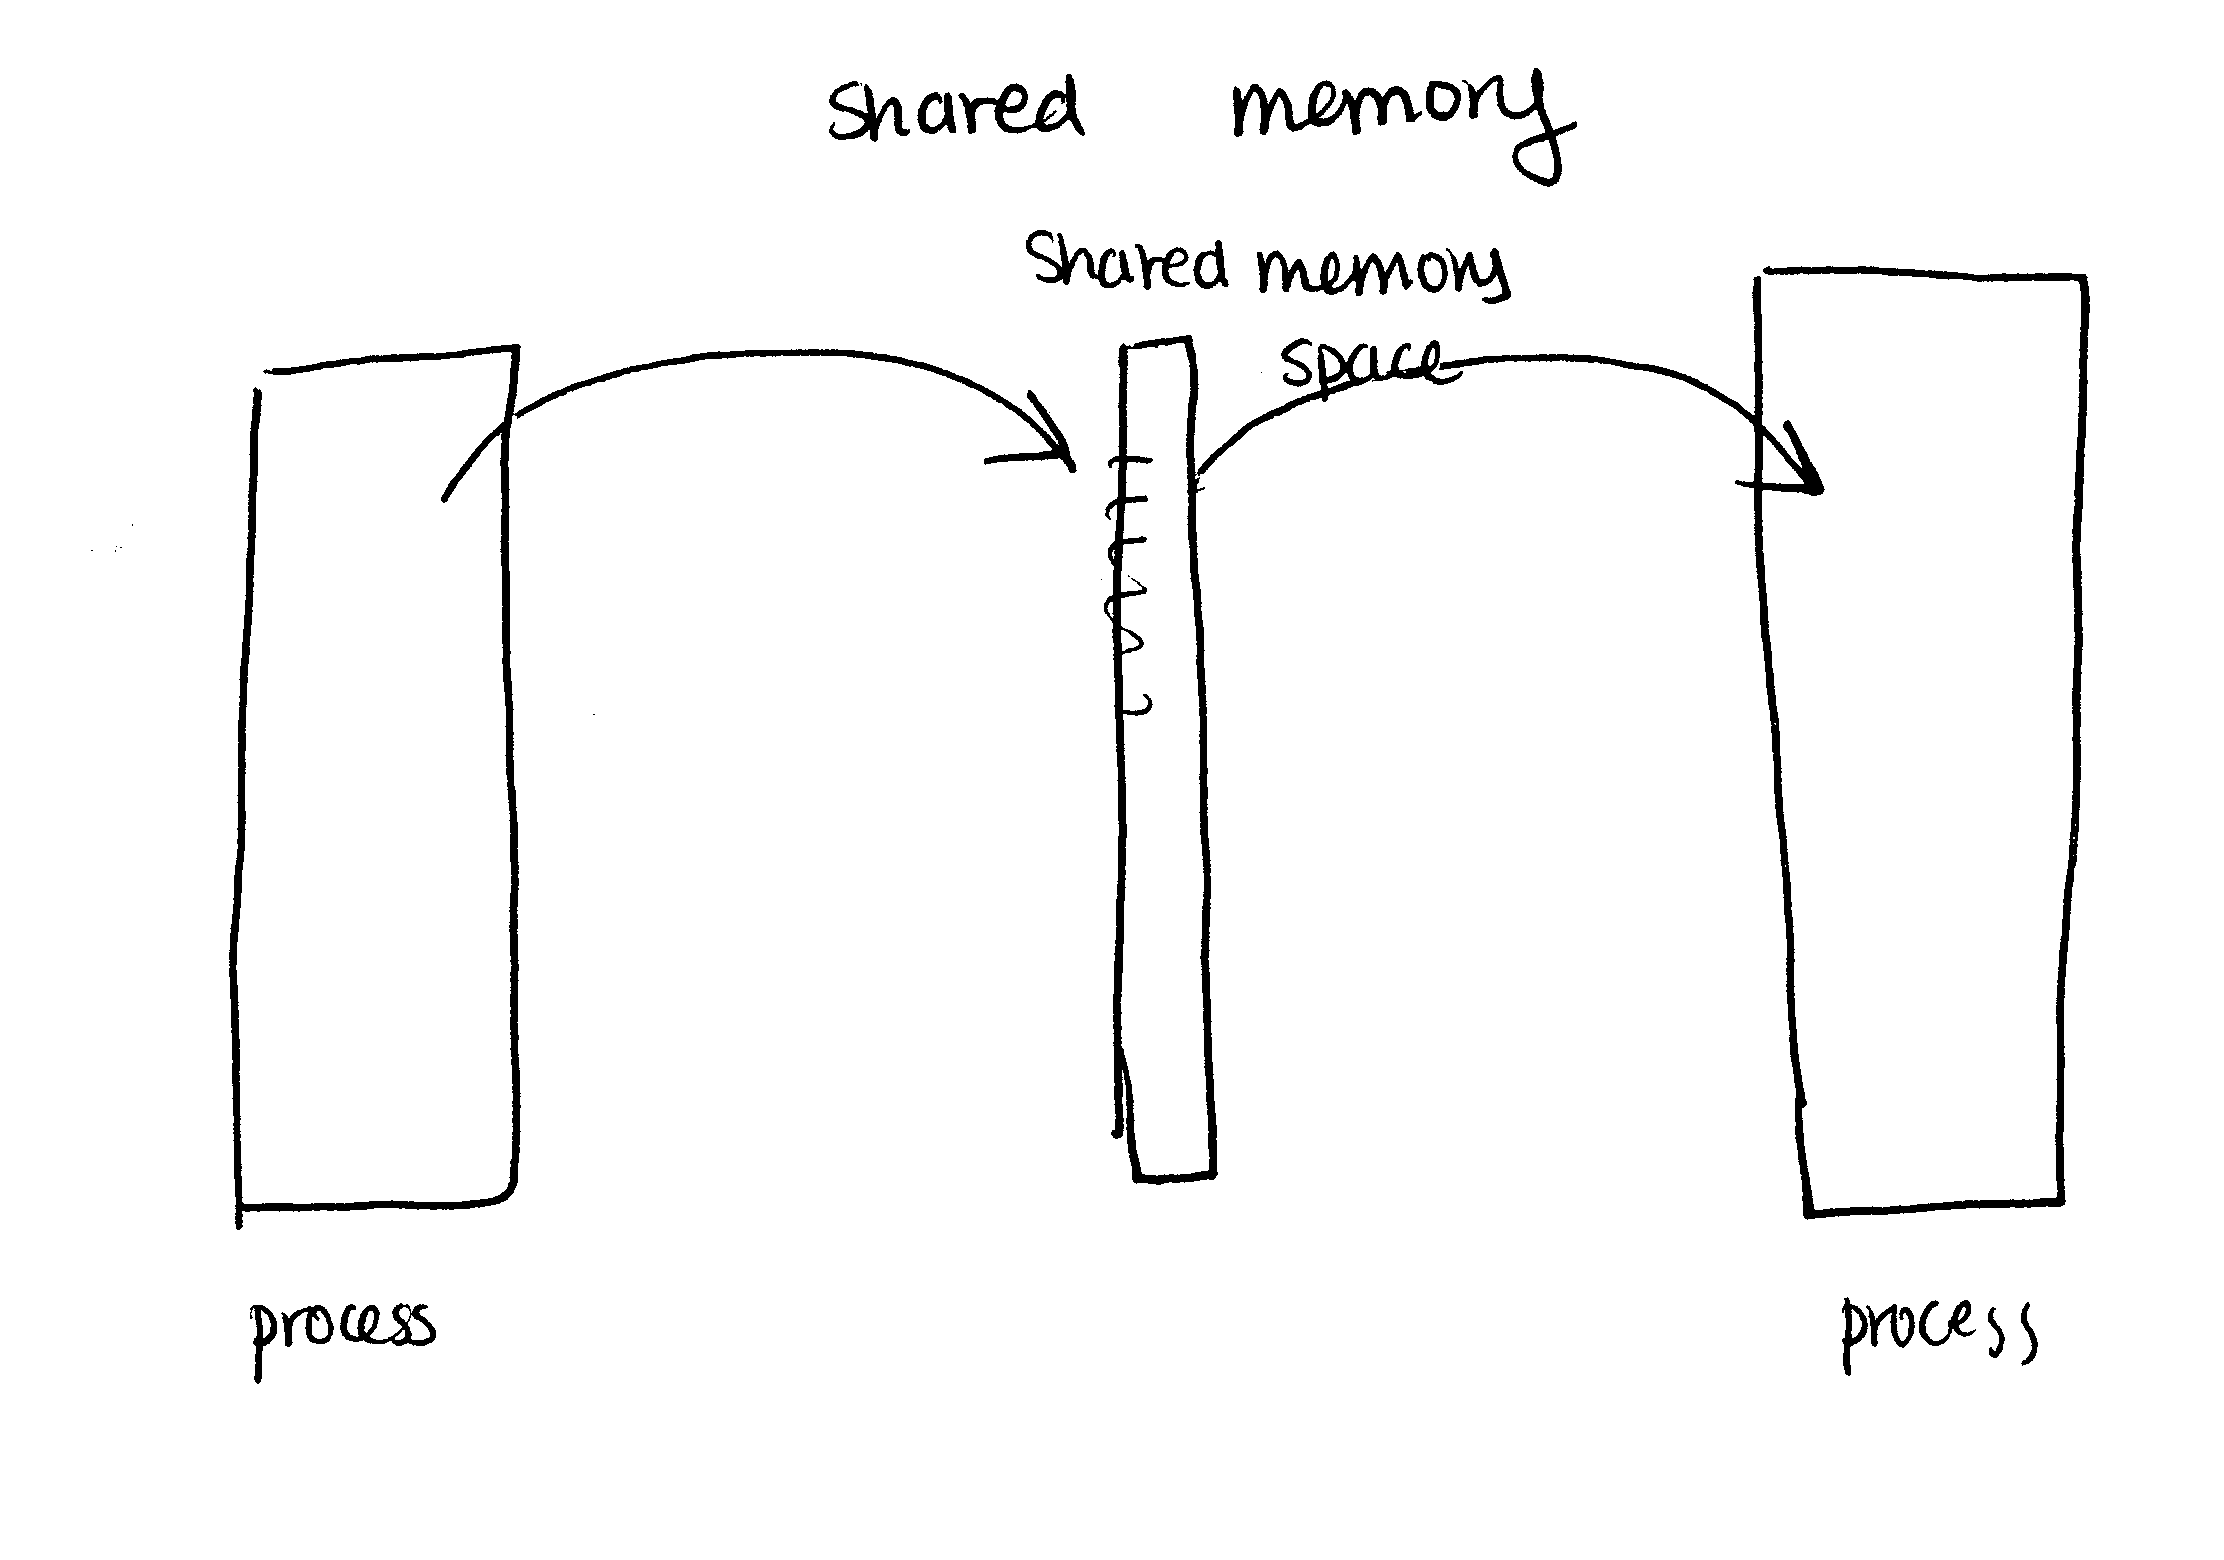 shared memory
shared memory
space
process
process